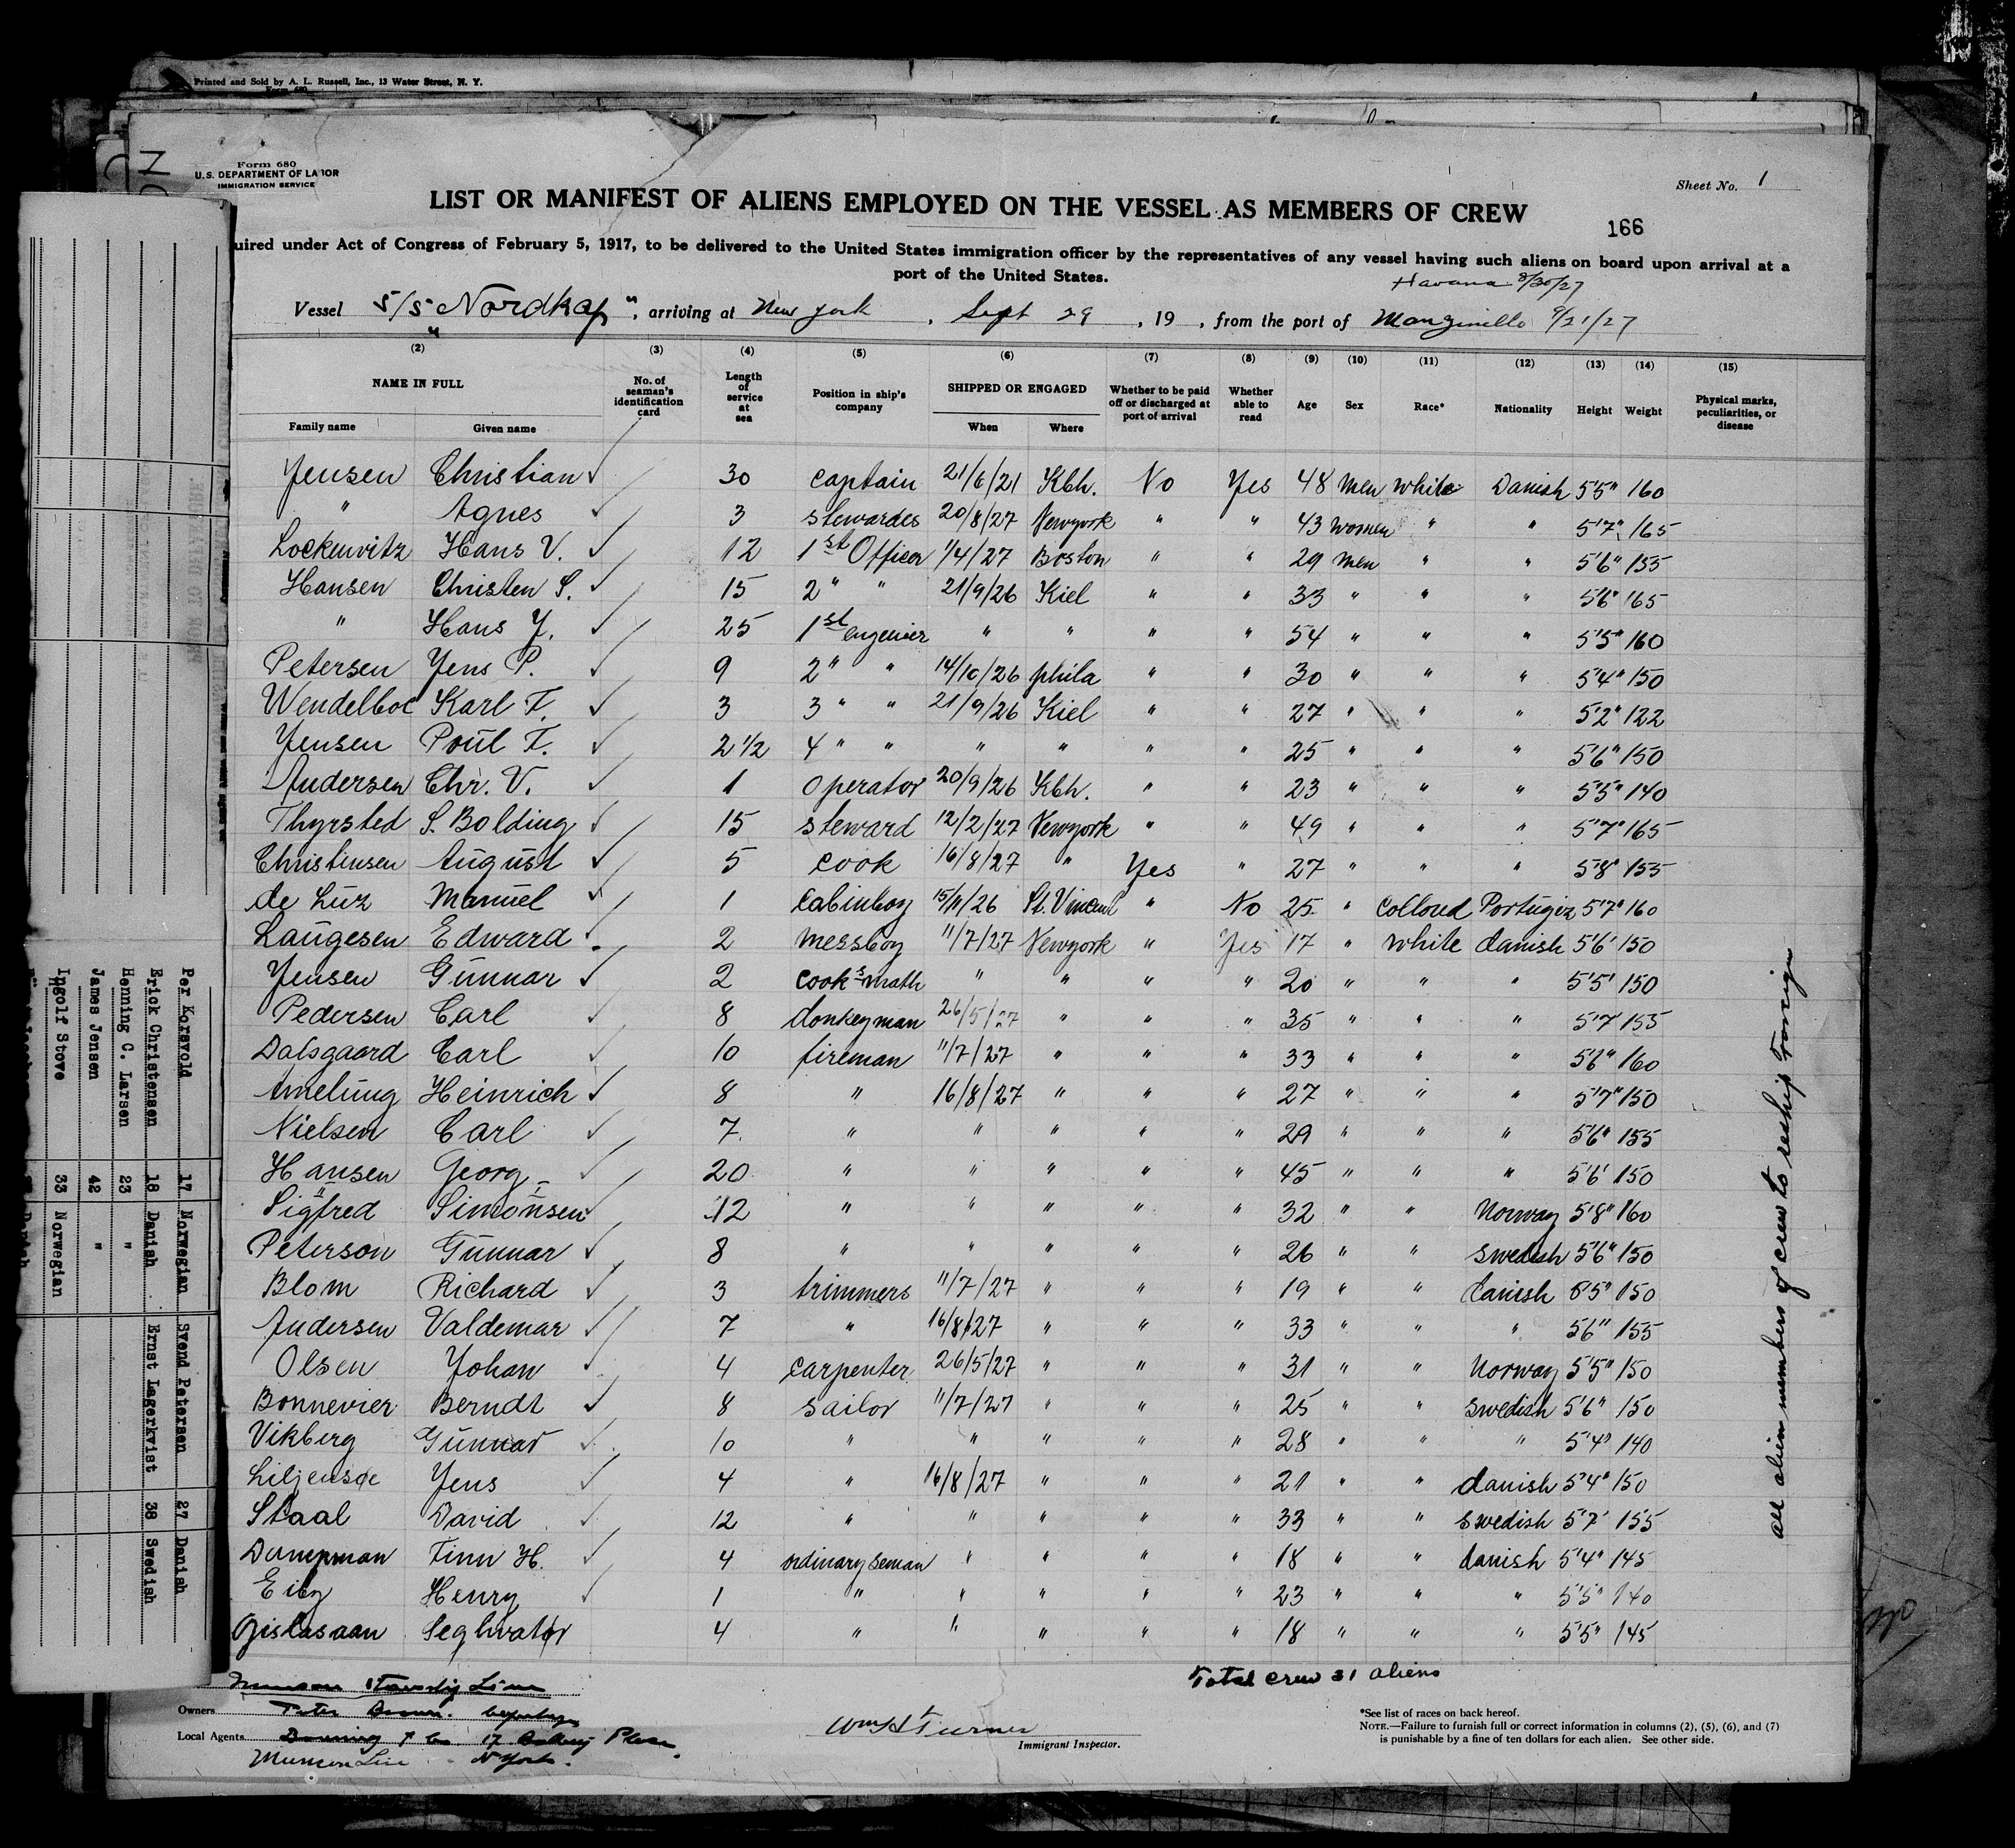 Printed and Sold by A. L. Russell, Inc., 13 Water Street, N. Y.
Form 680
Form 680
U.S. DEPARTMENT OF LABOR
IMMIGRATION SERVICE
Sheet No. 1
LIST OR MANIFEST OF ALIENS EMPLOYED ON THE VESSEL AS MEMBERS OF CREW
166
uired under Act of Congress of February 5, 1917, to be delivered to the United States immigration officer by the representatives of any vessel having such aliens on board upon arrival at a
port of the United States.
Havana 8/30/27
Vessel S/S "Nordkap", arriving at New York, Sept 29, 19 , from the port of Manzinello 9/21/27
(2) (3) (4) (5) (6) (7) (8) (9) (10) (11) (12) (13) (14) (15)
NAME IN FULL No. of seaman's identification card Length of service at sea Position in ship's company SHIPPED OR ENGAGED Whether to be paid off or discharged at port of arrival Whether able to read Age Sex Race* Nationality Height Weight Physical marks, peculiarities, or disease
Family name Given name When Where
Jensen Christian 30 captain 21/6/21 Kbh. No Yes 48 men white Danish 5'5" 160
" Agnes 3 stewardes 20/8/27 Newyork " " 43 women " " 5'7" 165
Lockenvitz Hans V. 12 1st Officer 1/4/27 Boston " " 29 men " " 5'6" 155
Hansen Christen S. 15 2 " " 21/9/26 Kiel " " 33 " " " 5'6" 165
" Hans J. 25 1st engenier " " " " 54 " " " 5'5" 160
Petersen Jens P. 9 2 " " 14/10/26 phila " " 30 " " " 5'4" 150
Wendelboe Karl F. 3 3 " " 21/9/26 Kiel " " 27 " " " 5'2" 122
Jensen Poul F. 2 1/2 4 " " " " " " 25 " " " 5'6" 150
Andersen Chr. V. 1 operator 20/9/26 Kbh. " " 23 " " " 5'5" 140
Thyrsted S. Bolding 15 steward 12/2/27 Newyork " " 49 " " " 5'7" 165
Christensen August 5 cook 16/8/27 " Yes " 27 " " " 5'8" 155
de Luz Manuel 1 cabinboy 15/11/26 St. Vincent " No 25 " Collored Portugiz 5'7" 160
Laugesen Edward 2 messboy 11/7/27 Newyork " Yes 17 " white danish 5'6' 150
Jensen Gunnar 2 cook's math " " " " 20 " " " 5'5' 150
Pedersen Carl 8 donkeyman 26/5/27 " " " 35 " " " 5'7' 155
Dalsgaard Carl 10 fireman 11/7/27 " " " 33 " " " 5'6" 160
Amelung Heinrich 8 " 16/8/27 " " " 27 " " " 5'7" 150
Nielsen Carl 7 " " " " " 29 " " " 5'6" 155
Hansen Georg 20 " " " " " 45 " " " 5'6' 150
Sigfred Simonsen 12 " " " " " 32 " " Norway 5'8" 160
Peterson Gunnar 8 " " " " " 26 " " Swedish 5'6" 150
Blom Richard 3 trimmers 11/7/27 " " " 19 " " danish 5'5" 150
Andersen Valdemar 7 " 16/8/27 " " " 33 " " " 5'6" 155
Olsen Johan 4 carpenter 26/5/27 " " " 31 " " Norway 5'5" 150
Bonnevier Berndt 8 sailor 11/7/27 " " " 25 " " Swedish 5'6" 150
Vikberg Gunnar 10 " " " " " 28 " " " 5'4" 140
Liljensøe Jens 4 " 16/8/27 " " " 21 " " danish 5'4" 150
Staal David 12 " " " " " 33 " " Swedish 5'7' 155
Finn H. 4 ordinary seman " " " " 18 " " danish 5'4" 145
Eiby Henry 1 " " " " " 23 " " " 5'5" 140
Gislasaan Seghvator 4 " " " " " 18 " " " 5'5" 145
Total crew 31 aliens
all alien members of crew to reship Foreign
Munson Steamship Line
Owners Peter Brown.
Local Agents & Co 17 Battery Place
Munson Line N York.
Wm H Turner
Immigrant Inspector.
*See list of races on back hereof.
NOTE.—Failure to furnish full or correct information in columns (2), (5), (6), and (7)
is punishable by a fine of ten dollars for each alien. See other side.
Per Korsvold 17 Norwegian Svend Petersen 27 Danish
Erick Christensen 18 Danish Ernst Lagerkvist 38 Swedish
Henning C. Larsen 23 "
James Jensen 42 "
Ingolf Stove 33 Norwegian